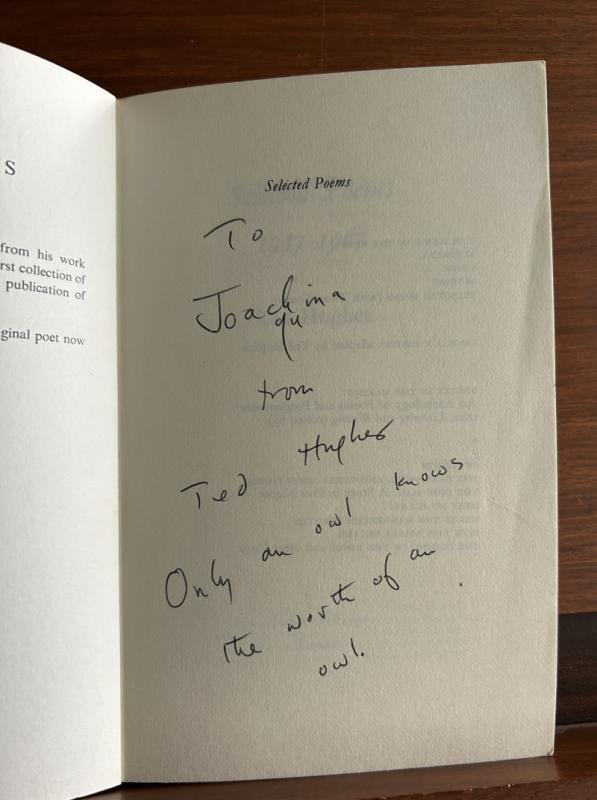 S
from his work
rst collection of
publication of
ginal poet now
Selected Poems
To
Joachina
qu
from
Ted Hughes
Only an owl knows
the worth of an
owl.